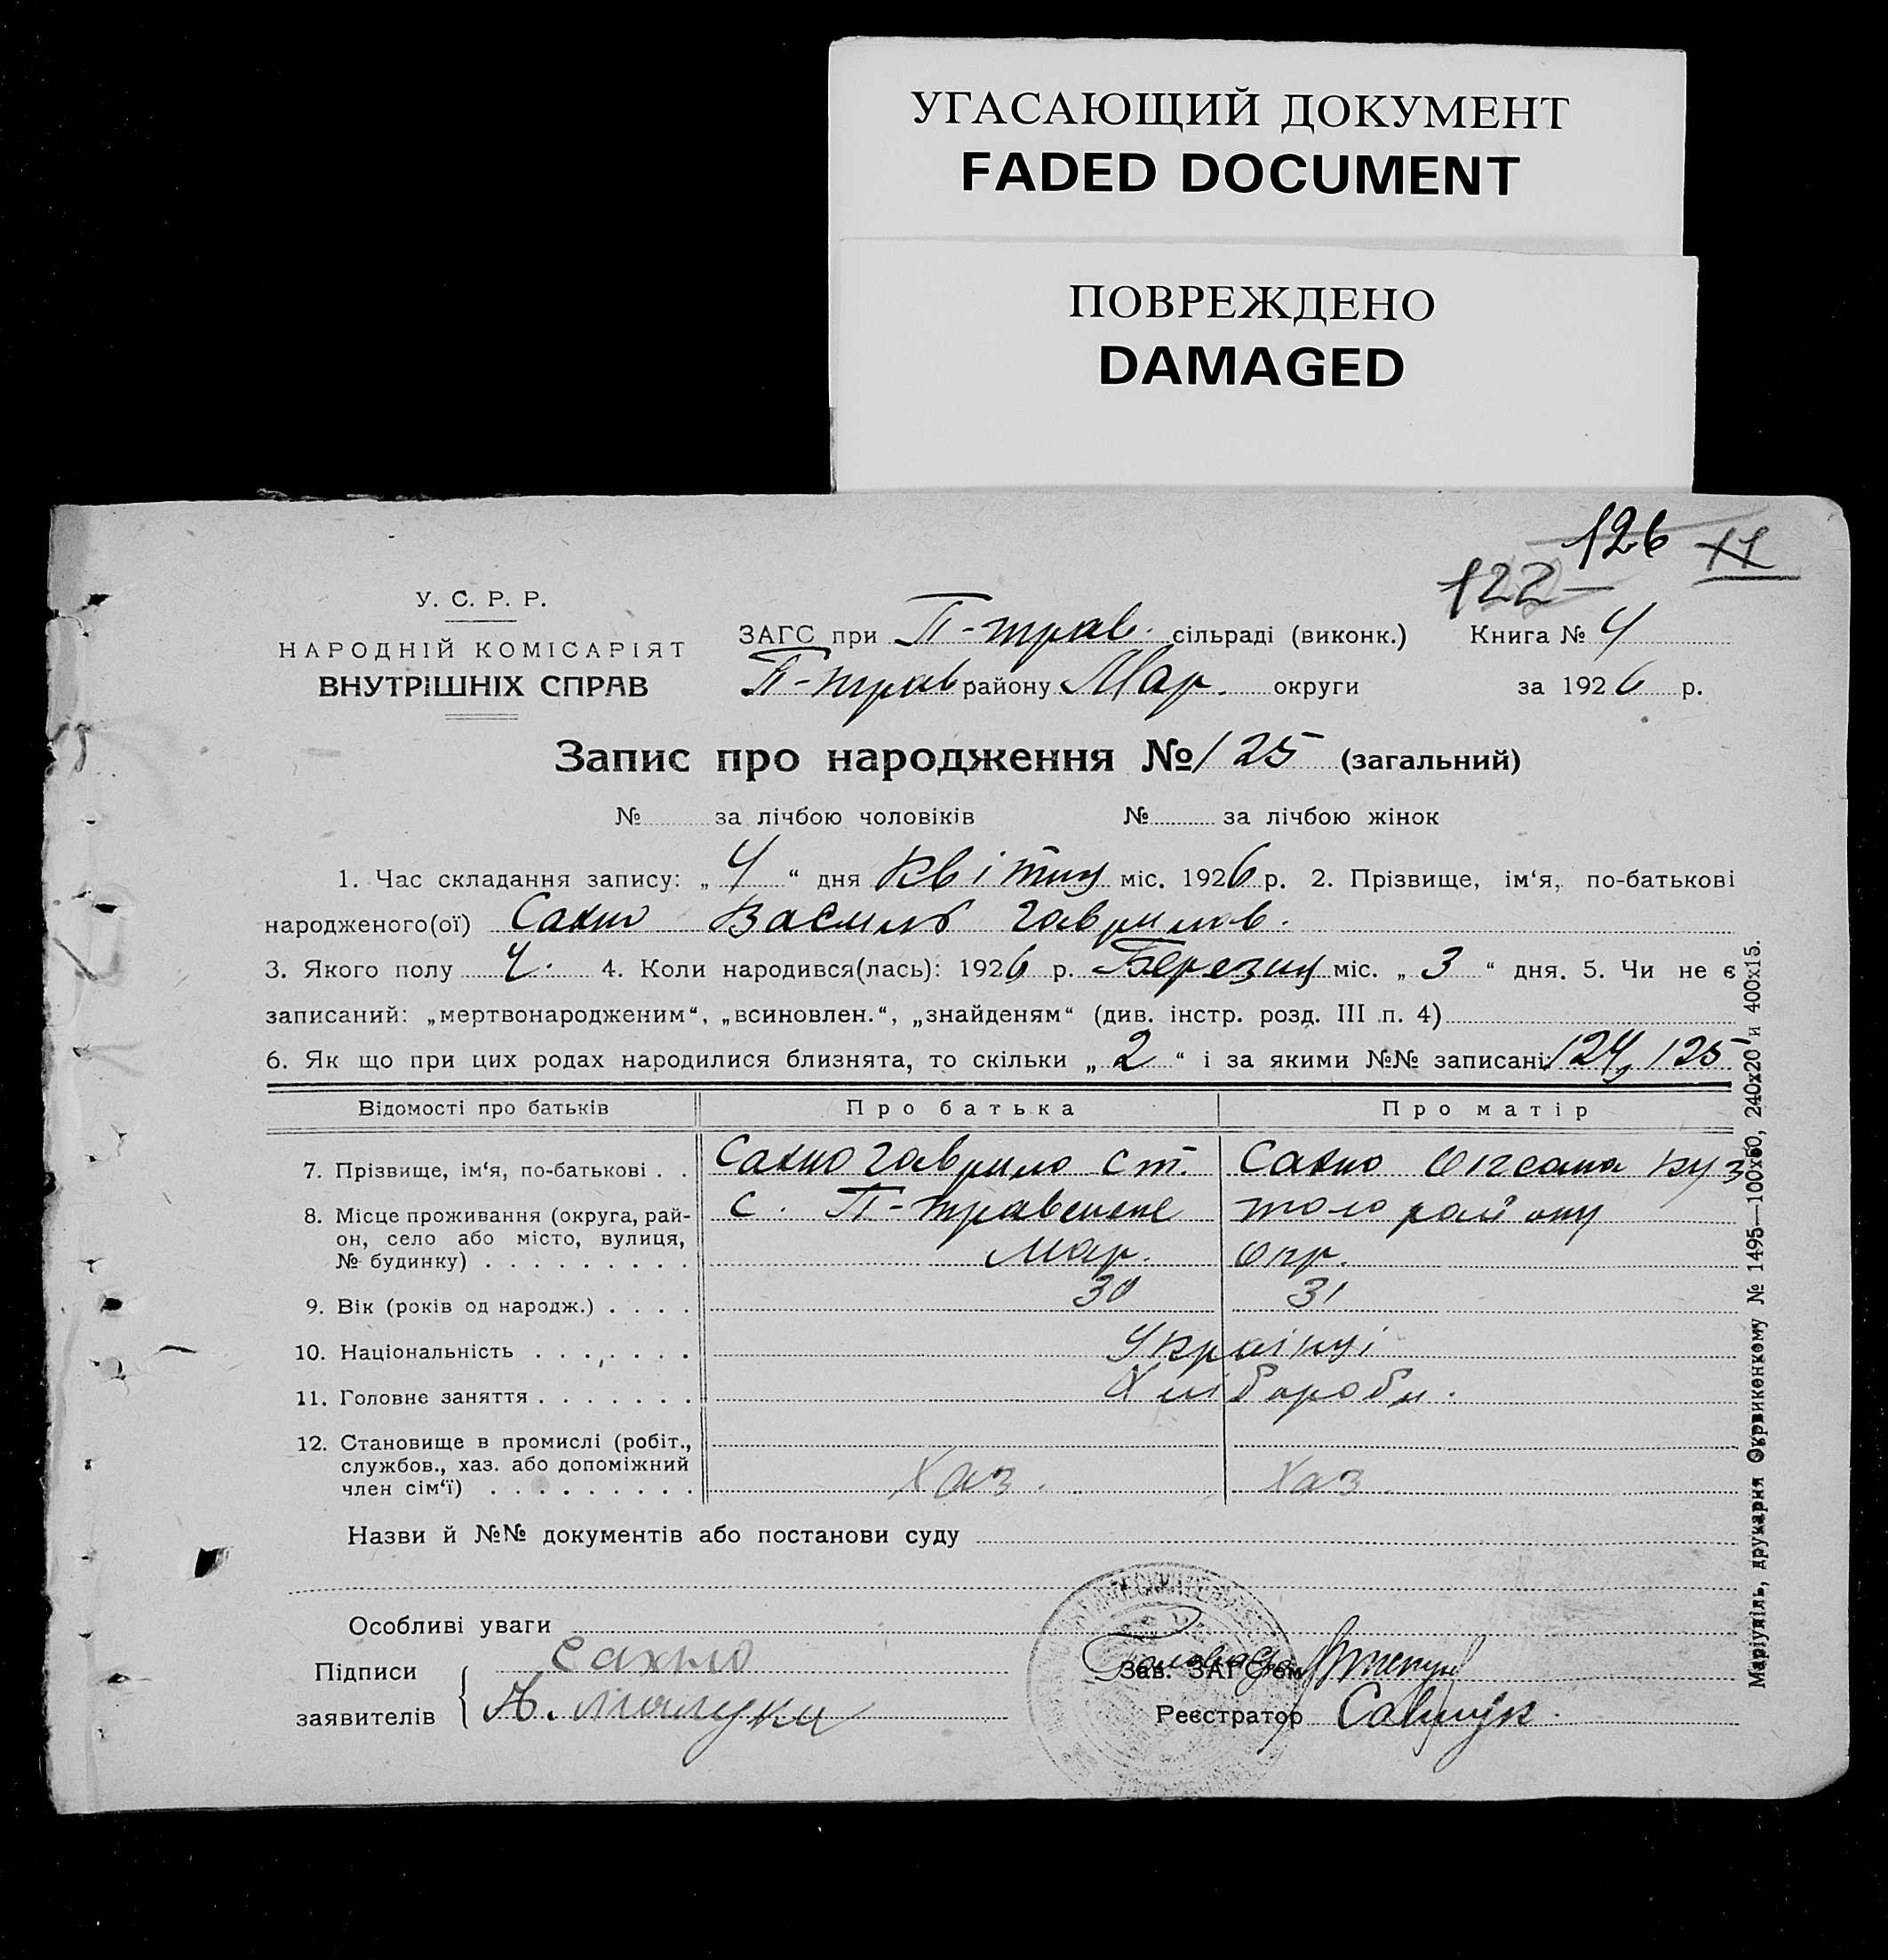 УГАСАЮЩИЙ ДОКУМЕНТ
FADED DOCUMENT
ПОВРЕЖДЕНО
DAMAGED
126 11
122
У. С. Р. Р.
НАРОДНІЙ КОМІСАРІЯТ
ВНУТРІШНІХ СПРАВ
ЗАГС при П-трав. сільраді (виконк.) Книга № 4
П-трав району Мар. округи за 1926 р.
Запис про народження № 125 (загальний)
№ за лічбою чоловіків № за лічбою жінок
1. Час складання запису: „4“ дня Квітня міс. 1926 р. 2. Прізвище, ім‘я, по-батькові
народженого(ої) Сахно Василь Гаврилов.
3. Якого полу Ч. 4. Коли народився(лась): 1926 р. Березня міс. „3“ дня. 5. Чи не є
записаний: „мертвонародженим“, „всиновлен.“, „знайденям“ (див. інстр. розд. III п. 4)
6. Як що при цих родах народилися близнята, то скільки „2“ і за якими №№ записані: 124, 125
Відомості про батьків Про батька Про матір
7. Прізвище, ім‘я, по-батькові . . Сахно Гаврило Ст. Сахно Оксана Куз
8. Місце проживання (округа, рай- С. П-травенне того району
он, село або місто, вулиця,
№ будинку) . . . . . . . . . Мар. Окр.
9. Вік (років од народж.) . . . . 30 31
10. Національність . . . . . . . Українці
11. Головне заняття . . . . . . . Хлібороби.
12. Становище в промислі (робіт.,
службов., хаз. або допоміжний
член сім‘ї) . . . . . . . . . Хаз. Хаз
Назви й №№ документів або постанови суду
Особливі уваги
Підписи Сахно Зав. ЗАГС‘ом
заявителів Реєстратор Савчук
Маріупіль, друкарня Окрвиконкому № 1495—100х50, 240х20 и 400х15.